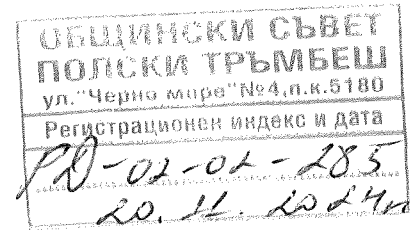 ОБЩИНСКИ СЪВЕТ
ПОЛСКИ ТРЪМБЕШ
ул."Черно море"№4,п.к.5180
Регистрационен индекс и дата
РД-02-02-285
20.11.2024г.